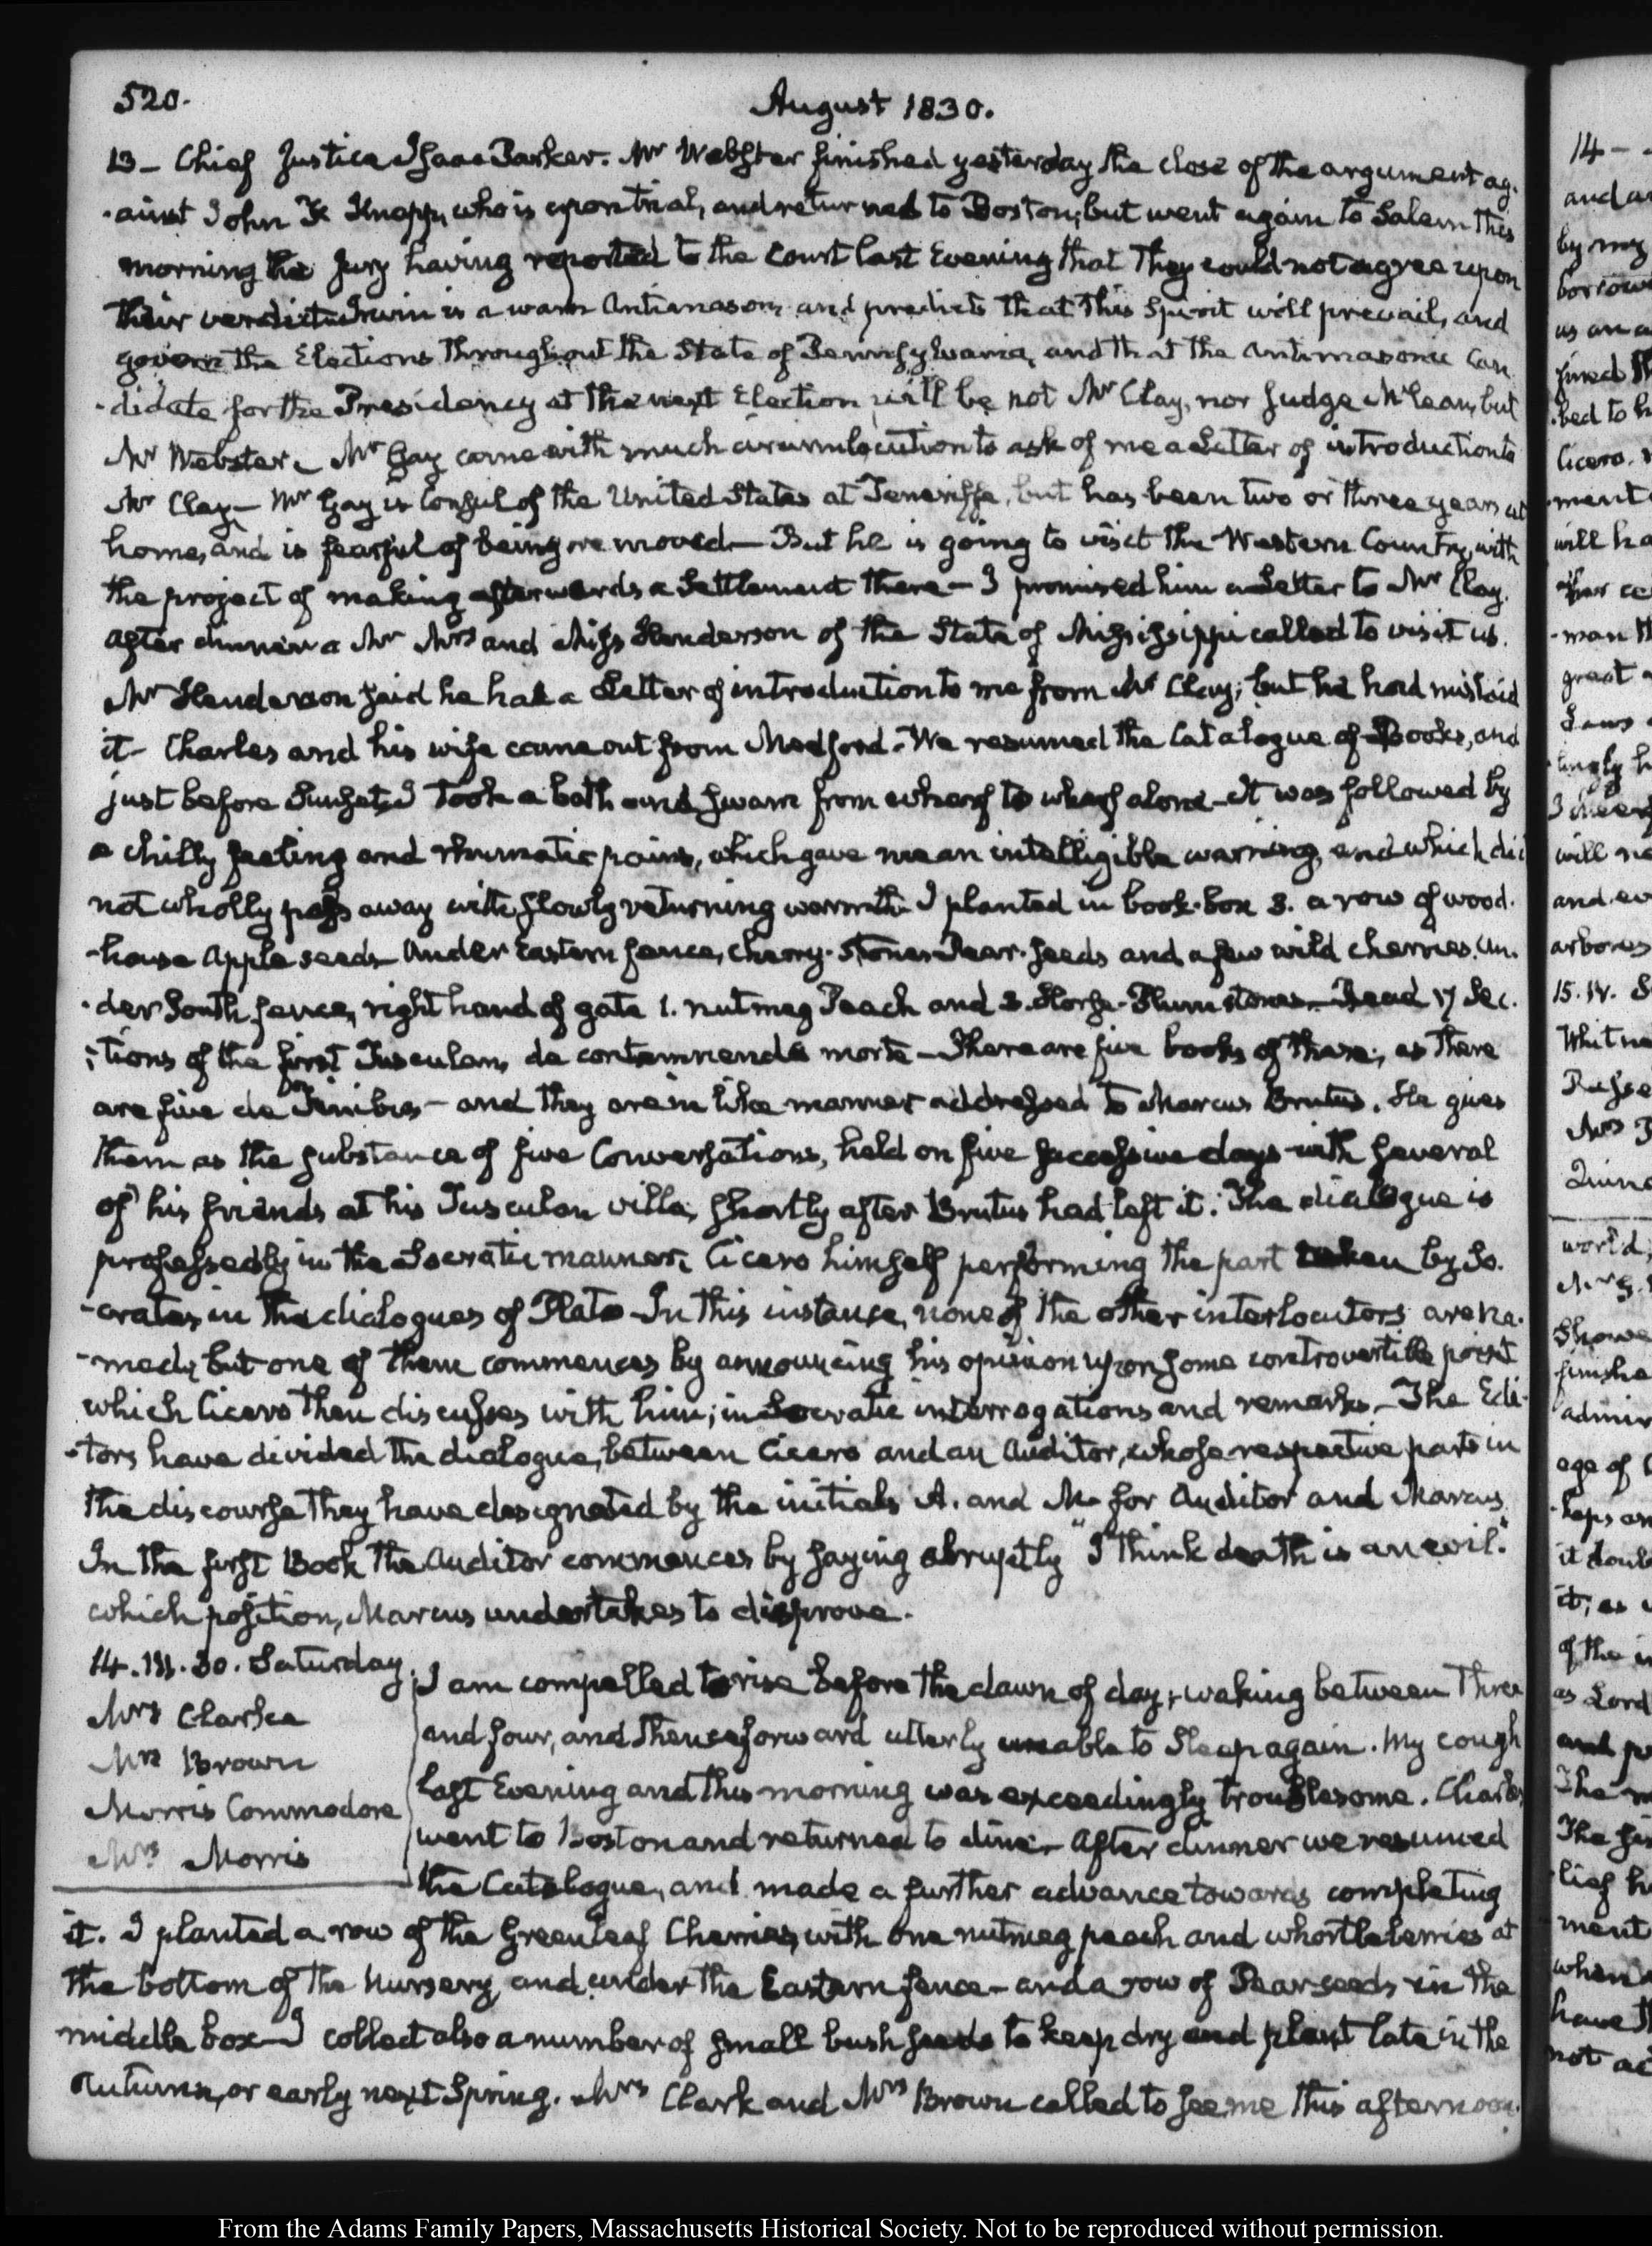 520.
August 1830.
13 — Chief Justice Isaac Parker. Mr Webster finished yesterday the close of the argument ag-
-ainst John F. Knapp, who is upon trial, and returned to Boston; but went again to Salem this
morning the Jury having reported to the Court last Evening that they could not agree upon
their verdict. Irwin is a warm Antimason, and predicts that this Spirit will prevail, and
govern the Elections throughout the State of Pennsylvania, and that the Antimasonic Can
-didate for the Presidency at the next Election will be not Mr Clay, nor Judge McLean, but
Mr Webster. Mr Gay came with much circumlocution to ask of me a Letter of introduction to
Mr Clay — Mr Gay is Consul of the United States at Teneriffe, but has been two or three years at
home, and is fearful of being removed — But he is going to visit the Western Country, with
the project of making afterwards a Settlement there — I promised him a Letter to Mr Clay.
After dinner a Mr Mrs and Miss Henderson of the State of Mississippi called to visit us.
Mr Henderson said he had a Letter of introduction to me from Mr Clay; but he had mislaid
it — Charles and his wife came out from Medford. We resumed the Catalogue of Books, and
just before Sunset, I took a bath and swam from wharf to wharf alone — It was followed by
a chilly feeling and rhumatic pains, which gave me an intelligible warning, and which did
not wholly pass away with slowly returning warmth. I planted in book-box 3. a row of wood-
-house Apple seeds — Under Eastern fence, cherry-stones Pear-seeds and a few wild cherries. Un-
-der South fence, right hand of gate 1. nutmeg Peach and 3. Horse-Plum stones. Read 17 Sec-
-tions of the first Tusculan, de contemnenda morte — There are five books of these, as there
are five de Finibus — and they are in like manner addressed to Marcus Brutus. He gives
them as the substance of five Conversations, held on five successive days with several
of his friends at his Tusculan villa, shortly after Brutus had left it. The dialogue is
professedly in the Socratic manner, Cicero himself performing the part taken by So-
-crates in the dialogues of Plato — In this instance, none of the other interlocutors are na-
-med, but one of them commences by announcing his opinion upon some controvertible point
which Cicero then discusses with him; in Socratic interrogations and remarks — The Edi-
-tors have divided the dialogue, between Cicero and an Auditor, whose respective parts in
the discourse they have designated by the initials A. and M. for Auditor and Marcus.
In the first Book the Auditor commences by saying abruptly "I think death is an evil."
which position, Marcus undertakes to disprove.
14. III. 30. Saturday.
Mrs Clarke
Mrs Brown
Morris Commodore
Mrs Morris
I am compelled to rise before the dawn of day; waking between three
and four, and thenceforward utterly unable to Sleep again. My cough
last Evening and this morning was exceedingly troublesome. Charles
went to Boston and returned to dine — After dinner we resumed
the Catalogue, and made a further advance towards completing
it. I planted a row of the Greenleaf Cherries, with one nutmeg peach and whortleberries at
the bottom of the Nursery, and under the Eastern fence — and a row of Pear seeds in the
middle box — I collect also a number of small bush seeds to keep dry and plant late in the
Autumn, or early next Spring. Mrs Clark and Mrs Brown called to see me this afternoon.
From the Adams Family Papers, Massachusetts Historical Society. Not to be reproduced without permission.